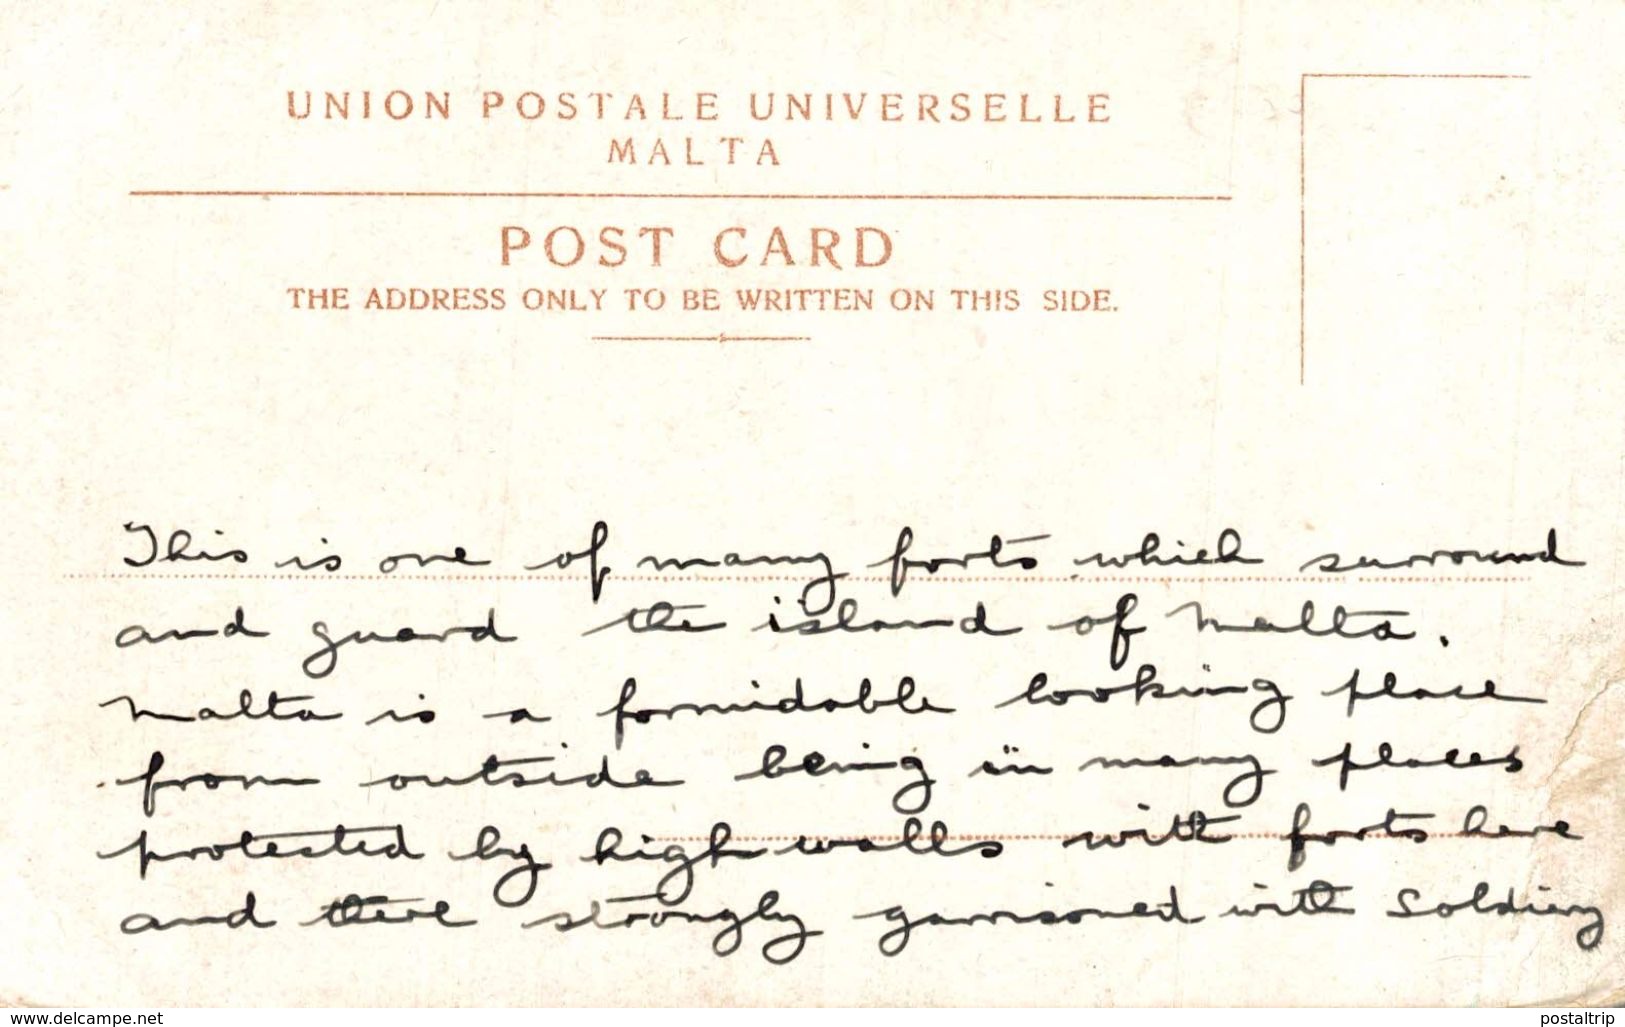 UNION POSTALE UNIVERSELLE
MALTA
POST CARD
THE ADDRESS ONLY TO BE WRITTEN ON THIS SIDE.
This is one of many forts which surround
and guard the island of Malta.
Malta is a formidable looking place
from outside being in many places
protected by high walls with forts here
and there strongly garrisoned with Soldiery
www.delcampe.net
postaltrip